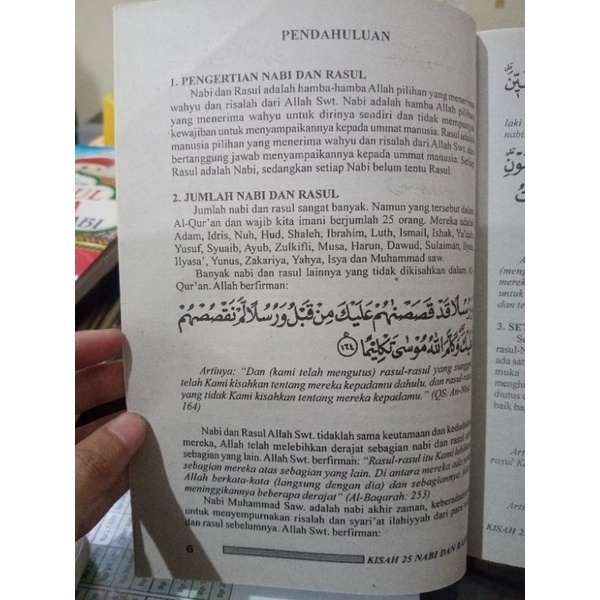 PENDAHULUAN
1. PENGERTIAN NABI DAN RASUL
Nabi dan Rasul adalah hamba-hamba Allah pilihan yang menerima
wahyu dan risalah dari Allah Swt. Nabi adalah hamba Allah pilihan
yang menerima wahyu untuk dirinya sendiri dan tidak mempunyai
kewajiban untuk menyampaikannya kepada ummat manusia. Rasul adalah
manusia pilihan yang menerima wahyu dan risalah dari Allah Swt. dan
bertanggung jawab menyampaikannya kepada ummat manusia. Setiap
Rasul adalah Nabi, sedangkan setiap Nabi belum tentu Rasul.
2. JUMLAH NABI DAN RASUL
Jumlah nabi dan rasul sangat banyak. Namun yang tersebut dalam
Al-Qur'an dan wajib kita imani berjumlah 25 orang. Mereka adalah
Adam, Idris, Nuh, Hud, Shaleh, Ibrahim, Luth, Ismail, Ishak, Ya'qub,
Yusuf, Syuaib, Ayub, Zulkifli, Musa, Harun, Dawud, Sulaiman, Ilyas,
Ilyasa', Yunus, Zakariya, Yahya, Isya dan Muhammad saw.
Banyak nabi dan rasul lainnya yang tidak dikisahkan dalam Al-
Qur'an. Allah berfirman:
وَرُسُلًا قَدْ قَصَصْنٰهُمْ عَلَيْكَ مِنْ قَبْلُ وَرُسُلًا لَّمْ نَقْصُصْهُمْ
عَلَيْكَ وَكَلَّمَ اللّٰهُ مُوْسٰى تَكْلِيْمًا ﴿١٦٤﴾
Artinya: "Dan (kami telah mengutus) rasul-rasul yang sungguh
telah Kami kisahkan tentang mereka kepadamu dahulu, dan rasul-rasul
yang tidak Kami kisahkan tentang mereka kepadamu." (QS. An-Nisa:
164)
Nabi dan Rasul Allah Swt. tidaklah sama keutamaan dan kedudukan
mereka, Allah telah melebihkan derajat sebagian nabi dan rasul atas
sebagian yang lain. Allah Swt. berfirman: "Rasul-rasul itu Kami lebihkan
sebagian mereka atas sebagian yang lain. Di antara mereka ada yang
Allah berkata-kata (langsung dengan dia) dan sebagiannya
meninggikannya beberapa derajat" (Al-Baqarah: 253)
Nabi Muhammad Saw. adalah nabi akhir zaman, keberadaannya
untuk menyempurnakan risalah dan syari'at ilahiyyah dari para nabi
dan rasul sebelumnya. Allah Swt. berfirman:
6
KISAH 25 NABI DAN RASUL
laki
nabi.
(meny
untuk
dan te
3. SE
rasul-N
muka
menghi
diutus
baik ba
rasul K
KISAH 2